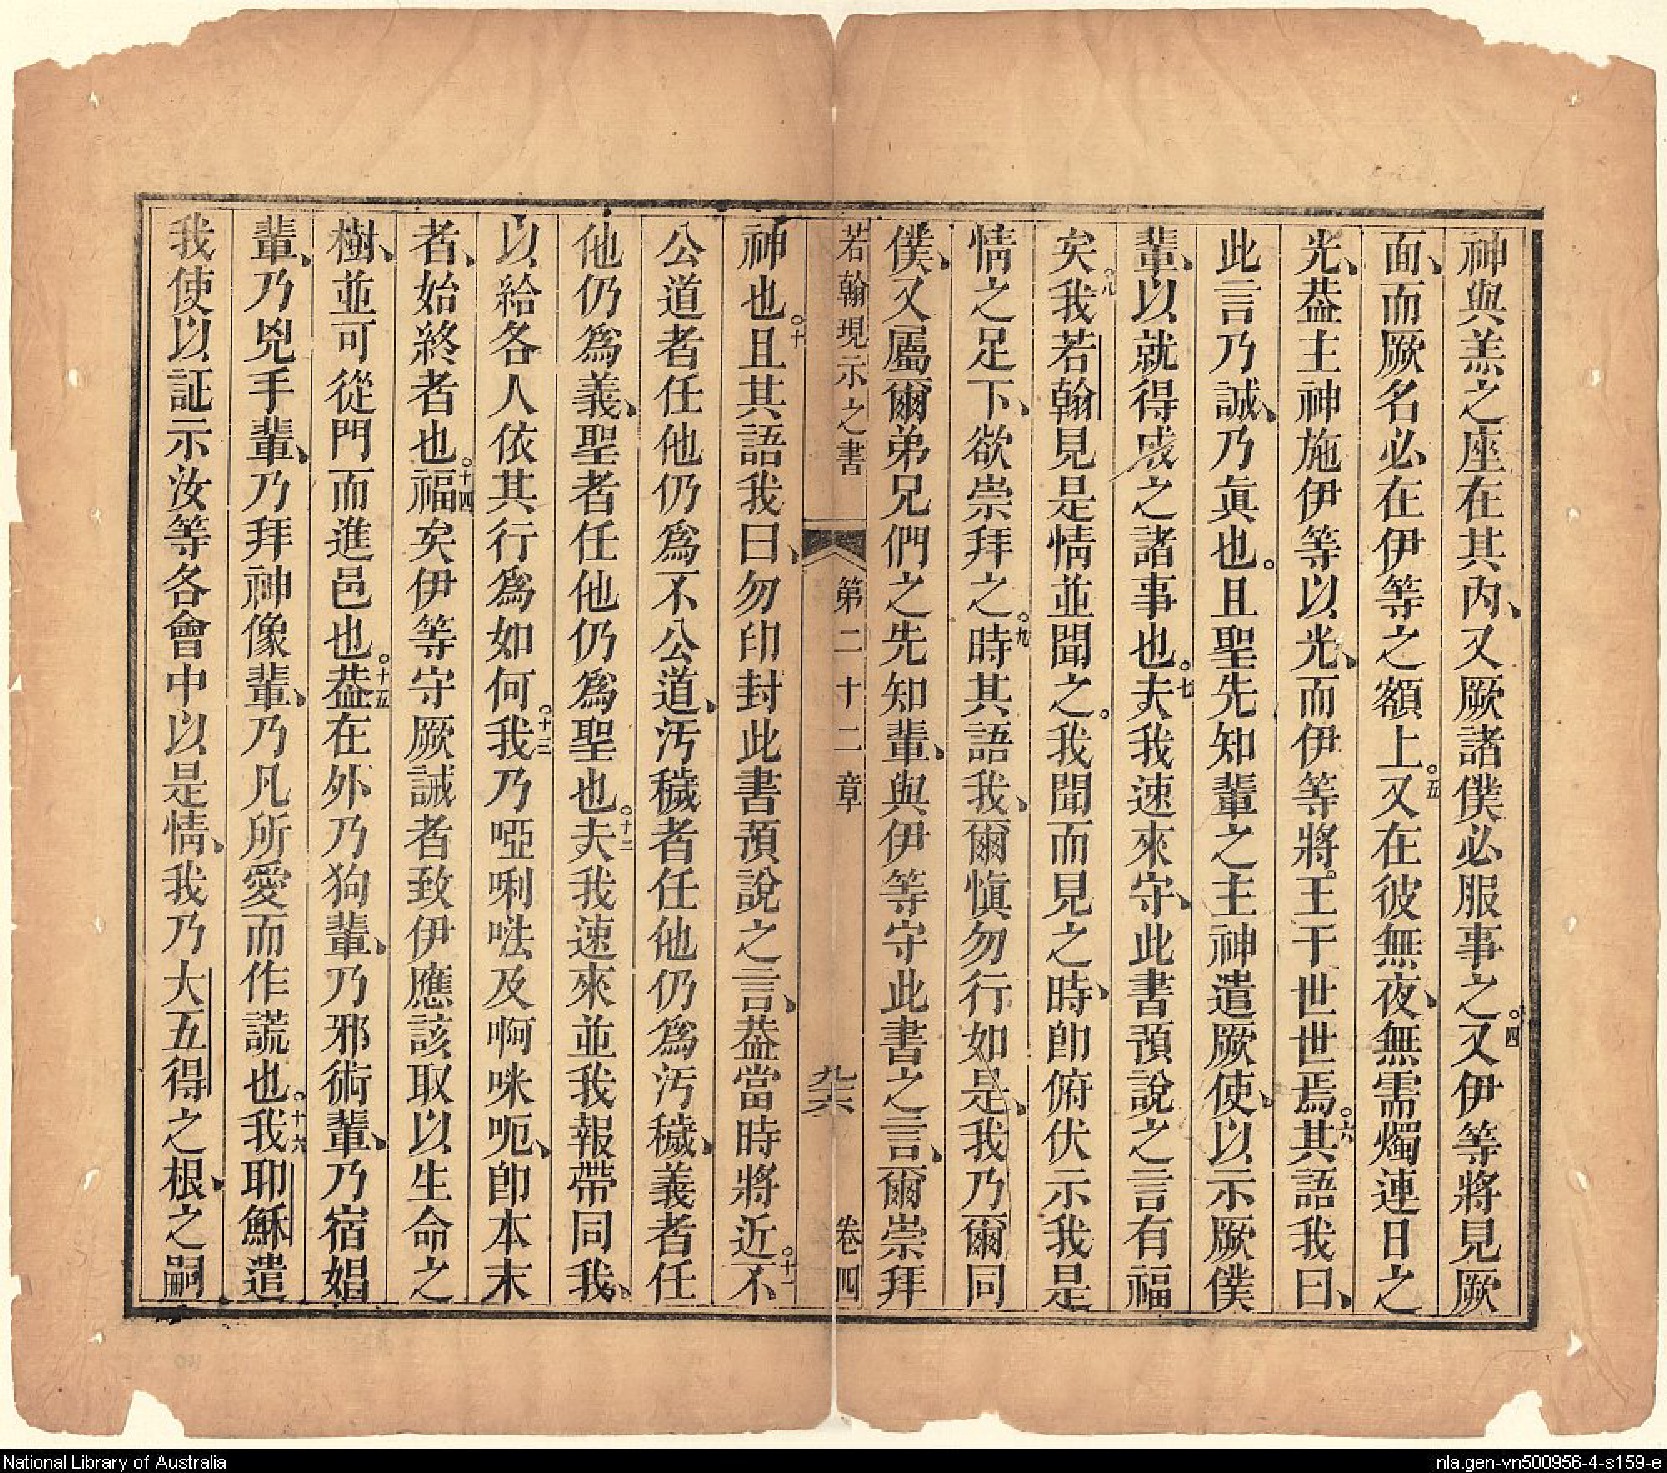 神與羔之座在其內、又厥諸僕必服事之。四又伊等將見厥
面、而厥名必在伊等之額上。五又在彼無夜、無需燭連日之
光、葢主神施伊等以光、而伊等將王于世世焉。六其語我曰、
此言乃誠、乃眞也。且聖先知輩之主神遣厥使、以示厥僕
輩、以就得成之諸事也。七夫我速來守、此書預說之言有福
矣。八我若翰見是情並聞之。我聞而見之時、卽俯伏示我是
情之足下、欲崇拜之。九時其語我、爾愼勿行如是、我乃爾同
僕、又屬爾弟兄們之先知輩、與伊等守此書之言、爾崇拜
若翰現示之書 第二十二章 九十六 卷四
神也。十且其語我曰、勿印封此書預說之言、葢當時將近。十一不
公道者任他仍爲不公道、汚穢者任他仍爲汚穢、義者任
他仍爲義、聖者任他仍爲聖也。十二夫我速來並我報帶同我、
以給各人依其行爲如何。十三我乃啞唎㕸及啊咪呃、卽本末
者、始終者也。十四福矣伊等守厥誡者致伊應該取以生命之
樹、並可從門而進邑也。十五葢在外乃狗輩、乃邪術輩、乃宿娼
輩、乃兇手輩、乃拜神像輩、乃凡所愛而作謊也。十六我耶穌遣
我使以証示汝等各會中以是情、我乃大五得之根、之嗣
National Library of Australia
nla.gen-vn500956-4-s159-e